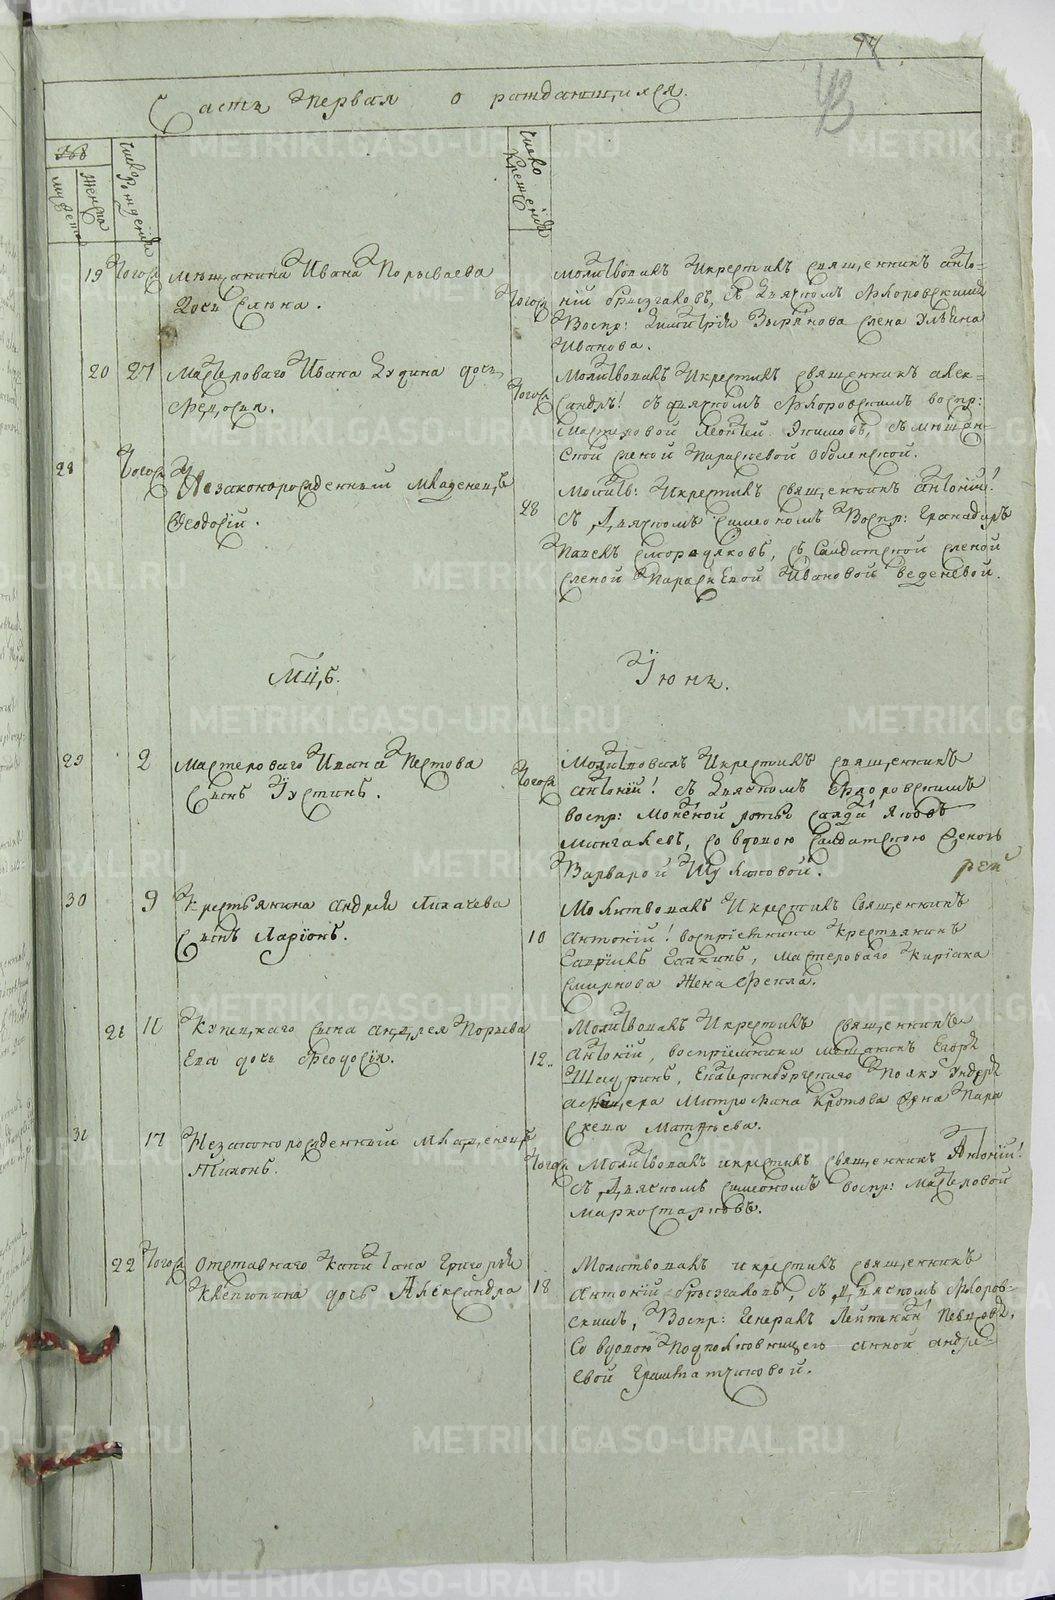 97
43
Часть первая о раждающихся.
мужеска
женска
число рождения
число крещения
19 Тогож Мещанина Ивана Порываева
дочь Елена.
Тогож
Молитвовалъ и крестилъ священникъ анто-
ній брызгаловъ, съ дьячкомъ Флоровскимъ
Воспр: Димитрій Зырянова жена Ульяна
Иванова.
20 27 Мастероваго Ивана Кудина дочь
Федосья.
Тогож
Молитвовалъ и крестилъ священникъ алек-
сандръ! съ дьячкомъ Флоровскимъ воспр:
мастеровой Леонтей Экимовъ, съ мещан-
ской женой Парасковей Оболенской.
28 Тогож Незаконорожденный младенецъ
Феодосій.
28
Молитв: и крестилъ священникъ антоній!
съ дьячкомъ симеономъ Воспр: Гранадиръ
Павелъ смородяковъ, съ салдатской женой
женой Параскевой Ивановой веденевой.
Мцъ. Іюнь.
29 2 Мастероваго Ивана Пестова
сынъ Іустинъ.
Тогож
Молитвовалъ и крестилъ священникъ
антоній! съ дьячкомъ Флоровскимъ
воспр: Монетной роты салдатъ Яковъ
Мингалевъ, со вдовою салдатскою женою
Варварой Шуляковой.
30 9 Крестьянина андрея Лихачева
сынъ Ларіонъ.
10
Молитвовалъ и крестилъ священникъ
антоній! воспріемники крестьянинъ
Гаврилъ Галкинъ, мастероваго Киріака
смирнова жена Фекла.
21 10 Купецкаго сына андрея Порыва
ева дочь Феодосія.
12
Молитвовалъ и крестилъ священникъ
антоній, воспріемники мещанинъ Егоръ
Шадринъ, Екатеринбургскаго Полку Ундеръ
афицера Митрофана Кротова жена Пара
скева Матвеева.
31 17 Незаконорожденный младенецъ
Тихонъ.
Тогож
Молитвовалъ и крестилъ священникъ Антоній!
съ дьячкомъ симеономъ воспр: мастеровой
Марко старковъ.
22 Тогож Отставнаго капитана Григорья
Клепинина дочь Александра
18
Молитвовалъ и крестилъ священникъ
антоній брызгаловъ, съ дьячкомъ Флоров-
скимъ, Воспр: Генералъ Лейтенантъ Певцовъ,
со вдовою подполковницею анной андре-
евой Грамматчиковой.
METRIKI.GASO-URAL.RU